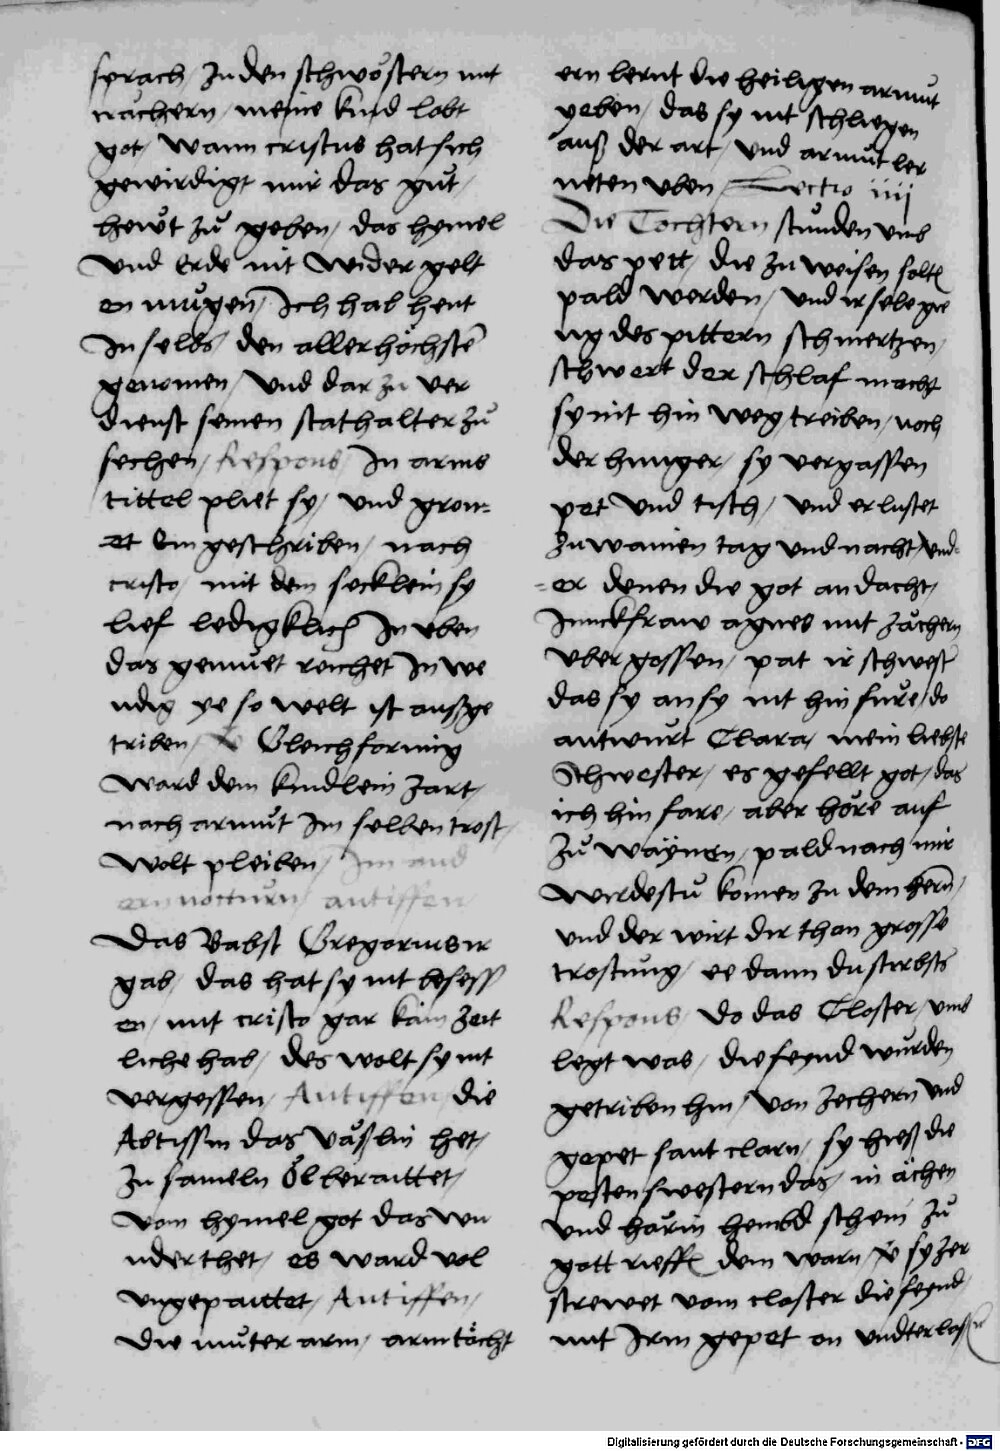 sprach / zu den schwöstern mit
zächern / meine kind lobt
got / wann cristus hat sich
gewirdigt mir das gůt /
hewt zů geben / das hymel
vnd Erde nit wider gelt
en mügen / Ich hab hewt
In selbs den aller höchstē
genomen / vnd dar zu ver
dienst seinen stathalter zů
sechen / Respons In arms
tittel pliet sy / vnd gron=
=et Ein geschriben / nach
cristo / mit dem secklein sy
lief ledigklich In eben
das gemuet reichet In we
ndig ye so welt ist außge
triben / Gleichformig
ward dem kindlein zart /
nach armůt Im selben trost /
wolt pleiben / Im and
ern nocturn antiffen
Das Babst Gregorius ir
gab / das hat sy nit besess
en / mit cristo gar kain zeit
liche hab / des wolt sy nit
vergessen / Antiffen / die
Abtissin das väßlin het /
zu sameln Öl beraittet /
vom hymel got das wu
nder thet / es ward vol
vngepaittet / Antiffen /
die můter arm / arm töcht
ern lernt die heiligen armůt
yeben / das sy nit schliegen
auß der art / vnd armůt ler
neten vben / Lectio iiij
Die Tochtern stůnden vmb
das pett / die zu weisen soltē
pald werden / vnd ir sele gie
ng des pittern schmertzen /
schwert der schlaf macht
sy nit hin weg treiben / noch
der hunger / sy vergassen
pet vnd tisch / vnd er lustet
zu wainen tag vnd nacht / vnd=
=er denen die got andacht /
Junckfraw agnes mit zächern
vber gossen / pat ir schwest
das sy an sy nit hin füre / do
antwůrt Clara / mein liebste
Schwester / es gefellt got / das
ich hin fare / aber höre auf
zů waÿnen / pald nach mir
wirdestů komen zu dem hern /
vnd der wirt dir thon grosse
trostung / ee dann du stirbsts
Respons / Do das Closter / vmb
legt was / die feynd wurden
getriben hin / von zechern vnd
gepet sant clarn / sy hieß die
pesten swestern das / in ächen
vnd härin hembd schein zů
gott rieffē dem warn / sy zer
strewet vom closter die feynd
mit Irm gepet on vnderlaß